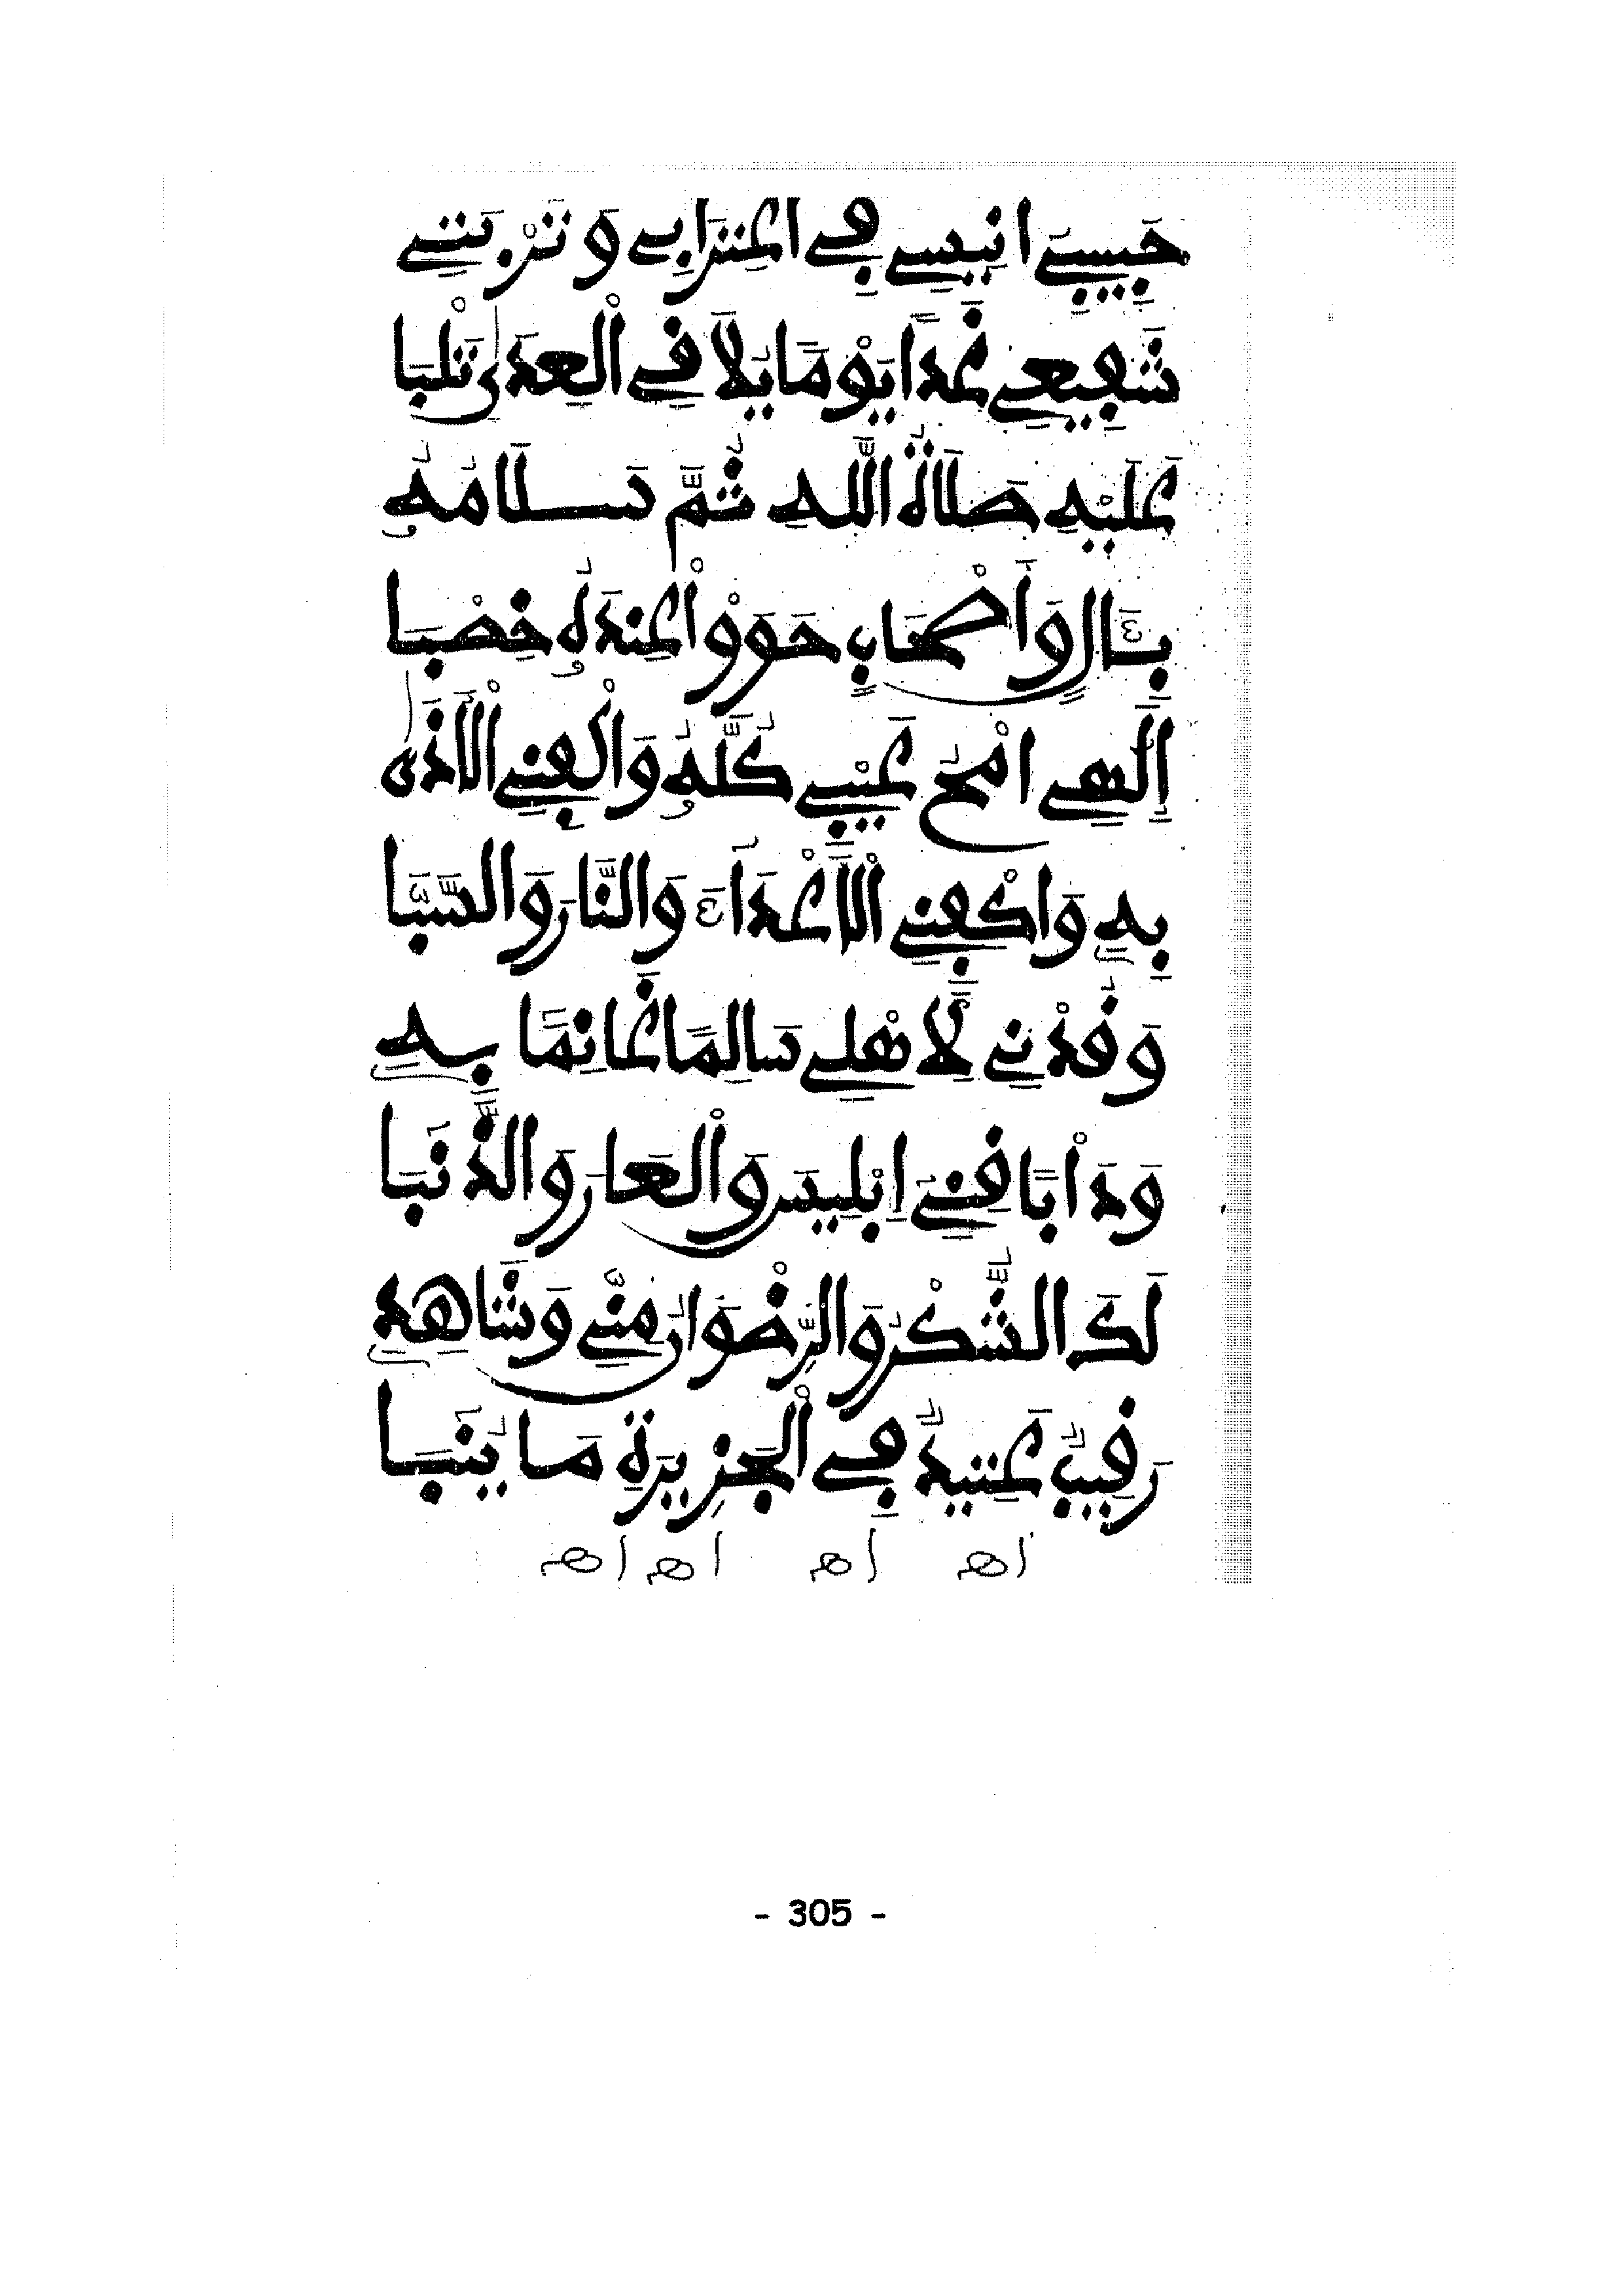 حَبِيبِي انِيسِي فِي اغْتِرَابِي وَتُرْبَتِي
شَفِيعِي غَدًا يَوْمًا يُلَافِي الْعِدَى تَلْبَا
عَلَيْهِ صَلَاةُ اللَّهِ ثُمَّ سَلَامُهُ
بِئَالٍ وَأَصْحَابٍ حَوَوْا عِنْدَهُ خِصْبَا
إِلَهِي امْحُ عَيْبِي كُلَّهُ وَاكْفِنِي الْأَذَى
بِهِ وَاكْفِنِي الْأَعْدَاءَ وَالنَّارَ وَالسَّبَّا
وَقُدْنِي لِأَهْلِي سَالِمًا غَانِمًا بِهِ
وَدَابًا قِنِي ابْلِيسَ وَالْعَارَ وَالذَّنْبَا
لَكَ الشُّكْرُ وَالرِّضْوَانُ مِنِّي وَشَاهِدِي
رَقِيبٌ عَتِيدٌ فِي الْجَزِيرَةِ مَا يُنْبَا
اهـ اهـ اهـ اهـ
- 305 -